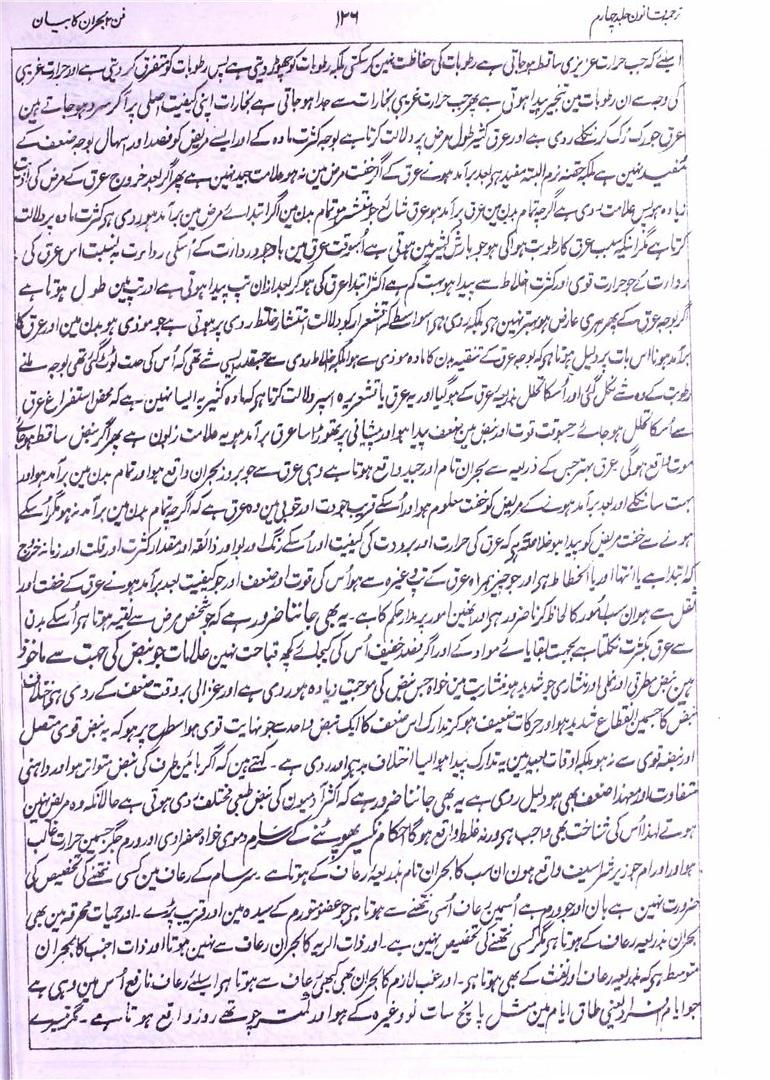 ترجمہ قانون جلد چہارم ۱۲۶ فن ۲ بحران کا بیان
اسلئے کہ جب حرارت غریزی ساقط ہو جاتی ہے رطوبات کی حفاظت نہین کر سکتی بلکہ رطوبات کو چھوڑ دیتی ہے پس رطوبات کو متفرق کر دیتی ہے اور حرارت غریبی
کی وجہ سے ان رطوبات مین تبخیر پیدا ہوتی ہے پھر جب حرارت غریبی بخارات سے جدا ہو جاتی ہے بخارات اپنی کیفیت اصلی پر آ کر سرد ہو جاتے ہین
عرق جو رک رک کر نکلے ردی ہے اور عرق کثیر طول مرض پر دلالت کرتا ہے بوجہ کثرت مادہ کے اور ایسے مریض کو فصد اور اسہال بوجہ ضعف کے
مفید نہین ہے بلکہ حقنہ نرم البتہ مفید ہے بعد برآمد ہونے عرق کے اگر خفت مرض مین نہ ہو علامت جید نہین ہے پھر اگر بعد خروج عرق کے مرض کی اذیت
زیادہ ہو پس علامت ردی ہے اگرچہ تمام بدن مین عرق برآمد ہو عرق شائع جو منتشر ہو تمام بدن مین اگر ابتداے مرض مین برآمد ہو ردی ہے کثرت مادہ پر دلالت
کرتا ہے مگر انکہ سبب عرق کا رطوبت ہوا کی ہو جو بارش کثیر مین ہوتی ہے اسوقت عرق مین باوجود رداءت کے اسکی رداءت بہ نسبت اس عرق کی
رداءت کے جو حرارت قوی اور کثرت اخلاط سے پیدا ہو بہت کم ہے اکثر ابتدا عرق کی ہو کر بعد ازان تپ پیدا ہوتی ہے اور تپ مین طول ہوتا ہے
اگر بوجہ عرق کے پھر ہری عارض ہو بہتر نہین ہی بلکہ ردی ہی اسواسطے کہ قشعریرہ کو دلالت انتشار خلط ردی پر ہوتی ہے جو موذی ہو بدن مین اور عرق کا
برآمد ہونا اس بات پر دلیل ہوتا ہے کہ بوجہ عرق کے تنقیہ بدن کا مادہ موذی سے ہوا بلکہ خلط ردی سے جسقدر ایسی شے تھی کہ اس کی حدت ٹوٹ گئی تھی بوجہ ملنے
رطوبت کے وہ شے نکل گئی اور اسکا تحلل بذریعہ عرق کے ہو گیا اور یہ عرق یا قشعریرہ اسپر دلالت کرتا ہے کہ مادہ کثیر ہے ایسا نہین ہے کہ محض استفراغ عرق
سے اسکا تحلل ہو جائے جسوقت قوت اور نبض مین ضعف پیدا ہو اور پیشانی پر تھوڑا سا عرق برآمد ہو یہ علامت زبون ہے پھر اگر نبض ساقط ہو جائے
موت واقع ہوگی عرق بہتر جس کے ذریعہ سے بحران تام اور جید واقع ہوتا ہے وہی عرق ہے جو بروز بحران واقع ہو اور تمام بدن مین برآمد ہو اور
بہت سا نکلے اور بعد برآمد ہونے کے مریض کو خفت معلوم ہو اور اسکے قریب جودت اور خوبی مین وہ عرق ہے کہ اگرچہ تمام بدن مین برآمد نہو مگر اسکے
ہونے سے خفت مریض کو پیدا ہو خلاصہ یہ ہے کہ عرق کی حرارت اور برودت کی کیفیت اور اسکے رنگ اور بو اور ذائقہ اور مقدار کثرت اور قلت اور زمانہ خروج
کہ ابتدا ہے یا انتہا اور یا انحطاط ہی اور جو چیز ہمراہ عرق کے تپ وغیرہ سے ہو اس کی قوت اور ضعف اور جو کیفیت بعد برآمد ہونے عرق کے خفت اور
ثقل سے ہو ان سب امور کا لحاظ کرنا ضرور ہی اور انہین امور پر مدار حکم کا ہے۔ یہ بھی جاننا ضرور ہے کہ جو شخص مرض سے نقیہ ہوتا ہی اسکے بدن
سے عرق بکثرت نکلتا ہے بجہت بقایاے مواد کے اور اگر فصد خفیف اس کی کیجائے کچھ قباحت نہین علامات جو نبض کی جہت سے ماخوذ
ہین نبض مطرقی اور نملی اور منشاری جو شدید ہو منشاریت مین خواہ جس نبض کی موجیت زیادہ ہو ردی ہے اور غزالی ہر وقت ضعف کے ردی ہی اختلاف
نبض کا جسمین انقطاع شدید ہو اور حرکات ضعیف ہو کر تدارک اس ضعف کا ایک نبض واحد سے جو نہایت قوی ہو اس طرح پر ہو کہ یہ نبض قوی متصل
اور نبضہ قوی سے نہ ہو بلکہ اوقات بعید مین یہ تدارک پیدا ہو ایسا اختلاف بد ہے اور ردی ہے۔ کہتے ہین کہ اگر بائین طرف کی نبض متواتر ہو اور داہنی
متفاوت اور معہذا ضعف بھی ہو دلیل ردی ہے یہ بھی جاننا ضرور ہے کہ اکثر آدمیون کی نبض طبعی مختلف ردی ہوتی ہے حالانکہ وہ مریض نہین
ہوتے لہذا اس کی شناخت بھی واجب ہی ورنہ غلط واقع ہوگا احکام نکسیر پھوٹنے کے سرسام دموی خواہ صفراوی اور ورم جگر جسمین حرارت غالب
ہو اور اورام جو زیر شراسیف واقع ہون ان سب کا بحران تام بذریعہ رعاف کے ہوتا ہے۔ سرسام کے رعاف مین کسی نتھنے کی تخصیص کی
ضرورت نہین ہے ہان اور جو ورم ہے اسمین رعاف اسی نتھنے سے ہوتا ہی جو عضو متورم کے سیدھ مین اور قریب پڑے۔ اور حمیات محرقہ مین بھی
بحران بذریعہ رعاف کے ہوتا ہی مگر کسی نتھنے کی تخصیص نہین ہے۔ اور ذات الریہ کا بحران رعاف سے نہین ہوتا اور ذات الجنب کا بحران
متوسط ہی کہ بذریعہ رعاف اور نفث کے بھی ہوتا ہی۔ اور غب لازم کا بحران بھی کبھی رعاف سے ہوتا ہی اسلئے رعاف نافع اس مین وہی ہے
جو ایام افراد یعنی طاق ایام مین مثل پانچ سات نو وغیرہ کے ہو اور کمتر چوتھے روز واقع ہوتا ہے۔ مگر تیسرے